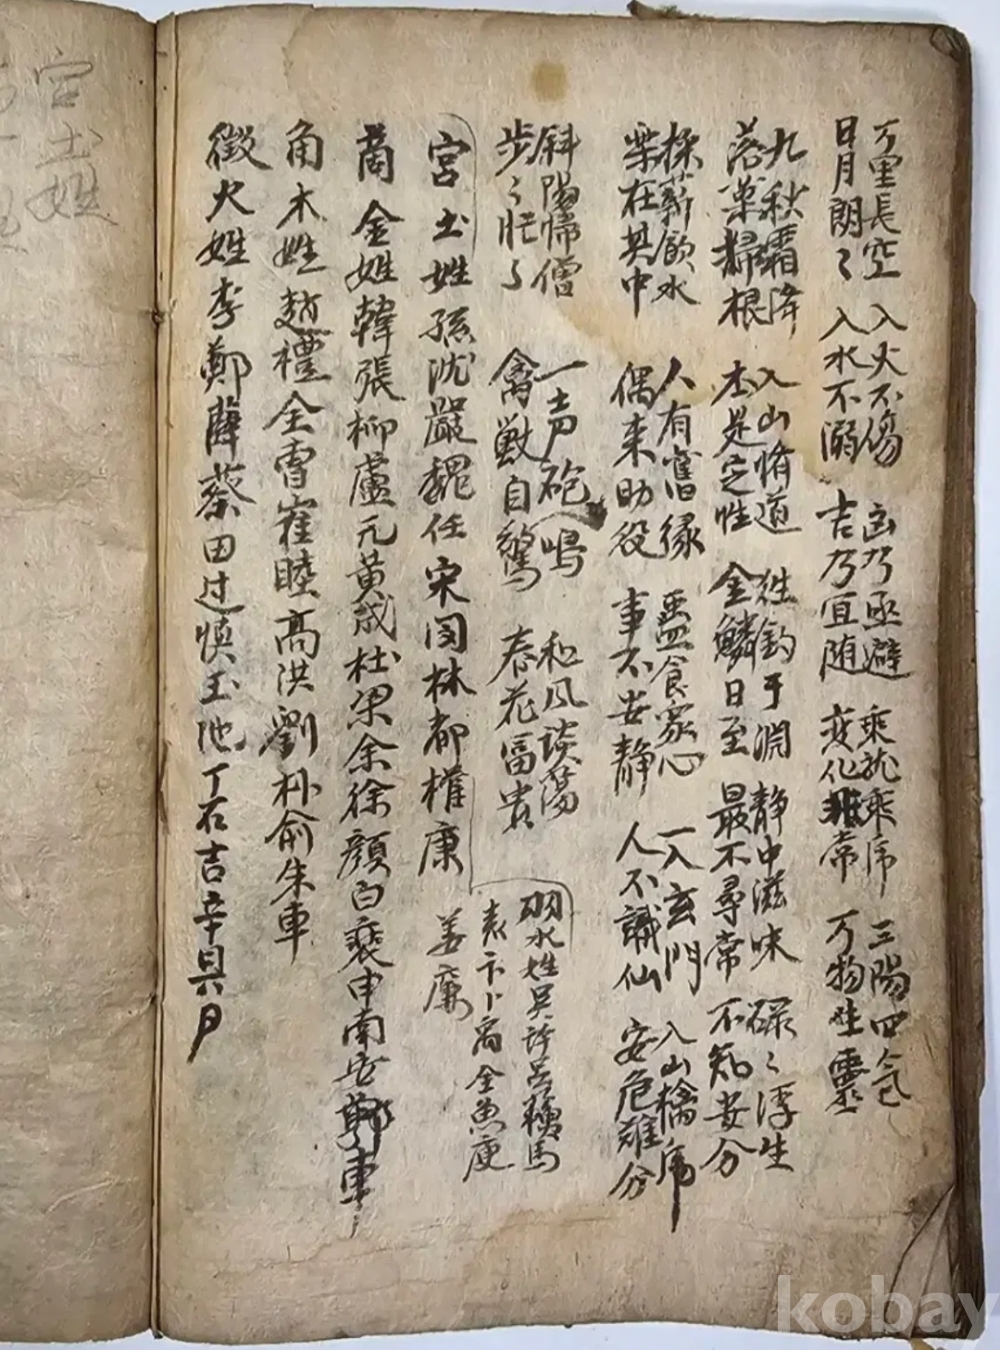 万里長空 入火不傷 凶乃亟避 乘龍乘虎 三陽四氣
日月朗〻 入水不溺 吉乃宜随 变化非常 万物生靈
九秋霜降 入山脩道 往釣于淵 静中滋味 碌〻浮生
落葉歸根 本是定性 金鱗日至 最不尋常 不知安分
採薪飮水 人有舊緣 惡食家心 一入玄門 入山擒虎
樂在其中 偶来助役 事不安静 人不識仙 安危難分
斜陽帰僧 一声砲鳴 和風談蕩
步〻忙〻 禽獸自驚 春花富貴
羽水姓吳許呂 馬
表卞卜 全魚庾
宮土姓孫沈嚴魏任宋閔林都權康
姜廉
商金姓韓張柳盧元黃成杜梁余徐顔白裵申南安鄭車
角木姓趙禮全曺崔睦高洪劉朴俞朱車
徵火姓李鄭薛蔡田过愼玉池丁石吉辛具尸
宮土姓
kobay